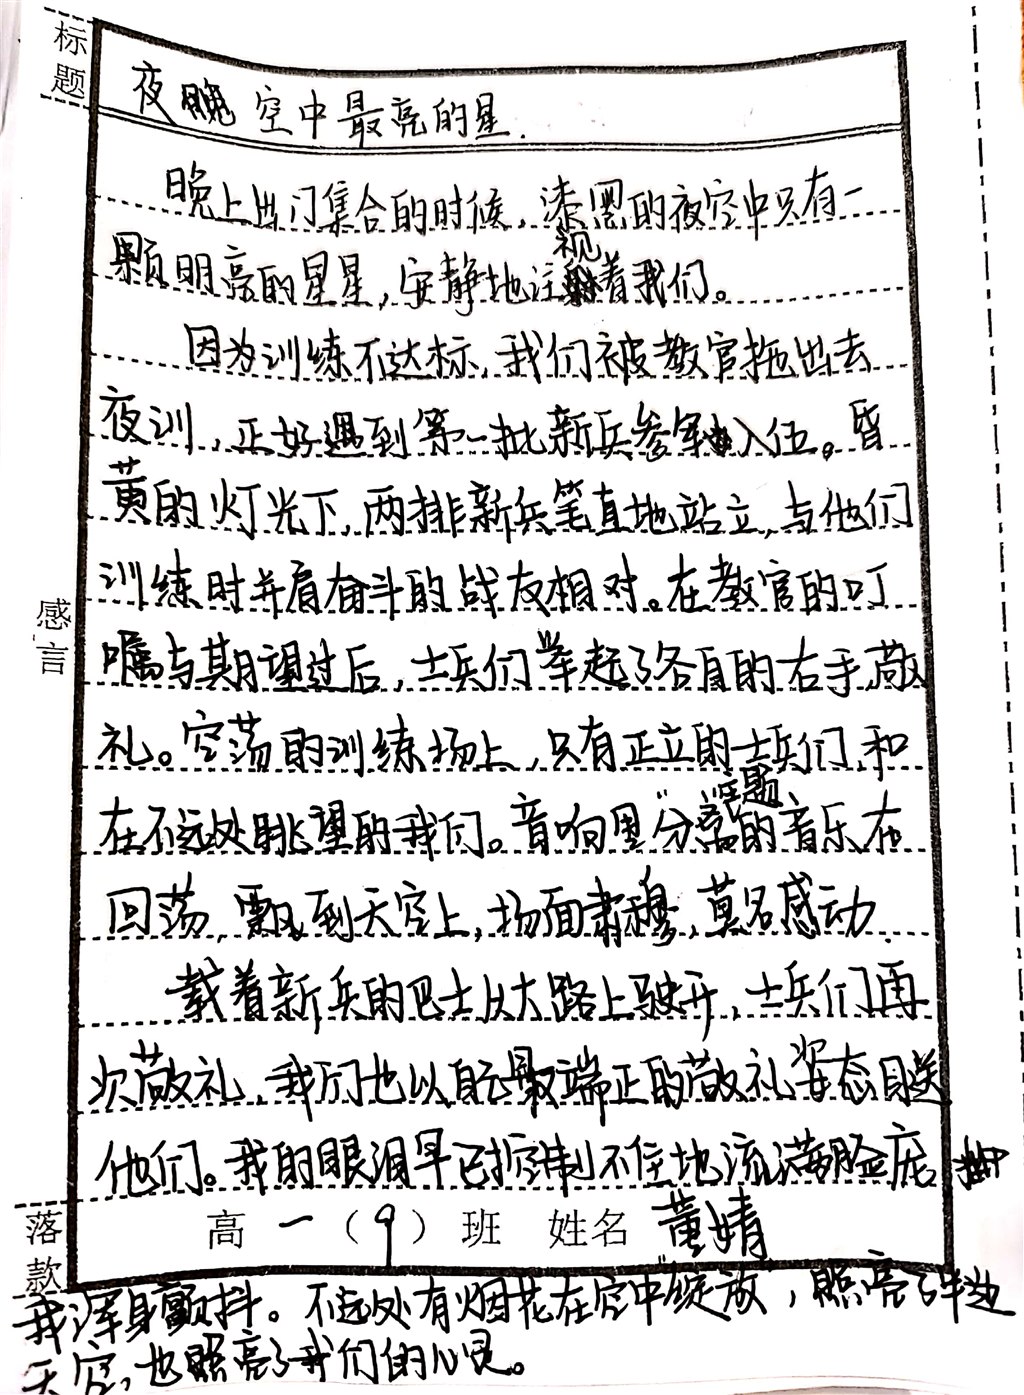 标题
夜晚空中最亮的星.
晚上出门集合的时候,漆黑的夜空中只有一
颗明亮的星星,安静地注视着我们。
因为训练不达标,我们被教官拖出去
夜训,正好遇到第一批新兵参军入伍。昏
黄的灯光下,两排新兵笔直地站立,与他们
训练时并肩奋斗的战友相对。在教官的叮
嘱与期望过后,士兵们举起了各自的右手,敬
礼。空荡的训练场上,只有正立的士兵们,和
在不远处眺望的我们。音响里"分离"主题的音乐在
回荡,飘到天空上,场面肃穆,莫名感动.
载着新兵的巴士从大路上驶开,士兵们再
次敬礼,我们也以自己最端正的敬礼姿态目送
他们。我的眼泪早已控制不住地流满脸庞
感言
落款
高一(9)班 姓名 董婧
我浑身颤抖。不远处有烟花在空中"绽放",照亮了半边
天空,也照亮了我们的心灵。